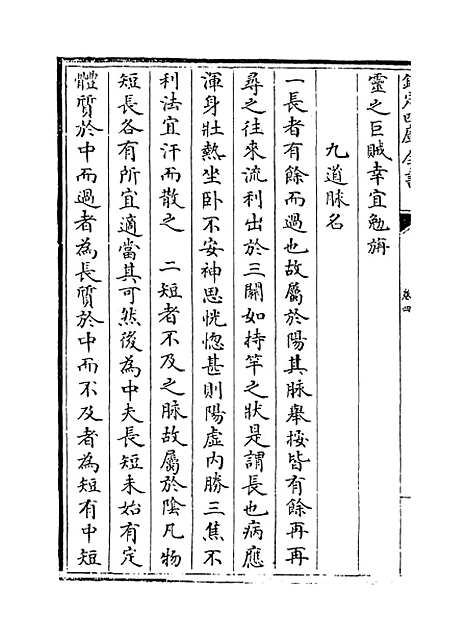 欽定四庫全書
卷四
靈之巨賊幸宜勉旃
九道脉名
一長者有餘而過也故屬於陽其脉舉按皆有餘再再
尋之往來流利出於三關如持竿之狀是謂長也病應
渾身壯熱坐卧不安神思恍惚甚則陽虛内勝三焦不
利法宜汗而散之　二短者不及之脉故屬於陰凡物
短長各有所宜適當其可然後為中夫長短未始有定
體質於中而過者為長質於中而不及者為短有中短